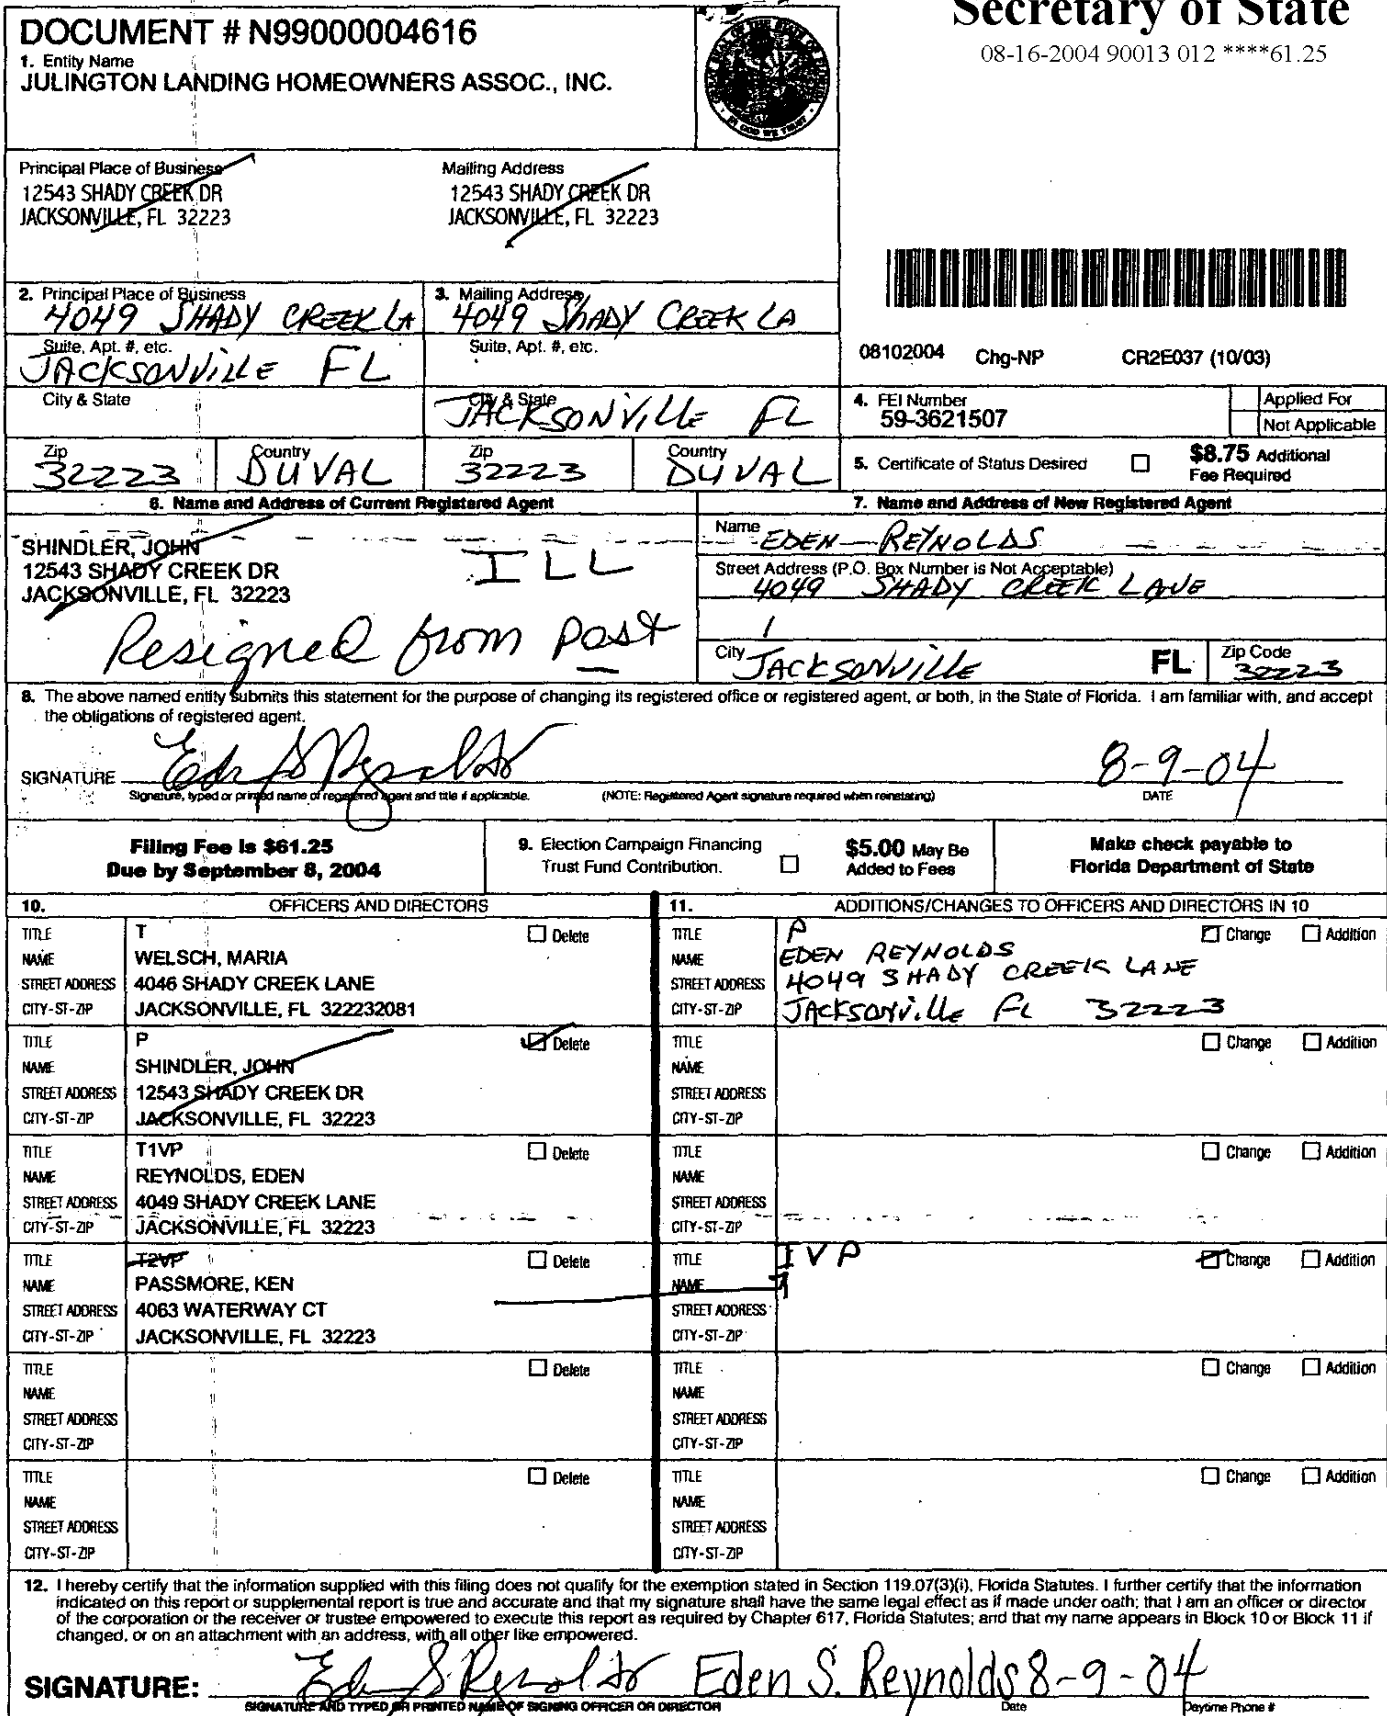 Secretary of State
08-16-2004 90013 012 ****61.25
DOCUMENT # N99000004616
1. Entity Name
JULINGTON LANDING HOMEOWNERS ASSOC., INC.
Principal Place of Business
12543 SHADY CREEK DR
JACKSONVILLE, FL 32223
Mailing Address
12543 SHADY CREEK DR
JACKSONVILLE, FL 32223
2. Principal Place of Business
4049 SHADY CREEK LA
Suite, Apt. #, etc.
JACKSONVILLE FL
City & State
Zip
32223
Country
DUVAL
3. Mailing Address
4049 SHADY CREEK LA
Suite, Apt. #, etc.
City & State
JACKSONVILLE FL
Zip
32223
Country
DUVAL
08102004 Chg-NP CR2E037 (10/03)
4. FEI Number
59-3621507
Applied For
Not Applicable
5. Certificate of Status Desired
$8.75 Additional
Fee Required
6. Name and Address of Current Registered Agent
SHINDLER, JOHN
12543 SHADY CREEK DR
JACKSONVILLE, FL 32223
ILL
Resigned from post
7. Name and Address of New Registered Agent
Name
EDEN REYNOLDS
Street Address (P.O. Box Number is Not Acceptable)
4049 SHADY CREEK LANE
City
JACKSONVILLE
FL
Zip Code
32223
8. The above named entity submits this statement for the purpose of changing its registered office or registered agent, or both, in the State of Florida. I am familiar with, and accept
the obligations of registered agent.
SIGNATURE Eden S Reynolds 8-9-04
Signature, typed or printed name of registered agent and title if applicable. (NOTE: Registered Agent signature required when reinstating) DATE
Filing Fee is $61.25
Due by September 8, 2004
9. Election Campaign Financing
Trust Fund Contribution.
$5.00 May Be
Added to Fees
Make check payable to
Florida Department of State
10. OFFICERS AND DIRECTORS
TITLE T Delete
NAME WELSCH, MARIA
STREET ADDRESS 4046 SHADY CREEK LANE
CITY-ST-ZIP JACKSONVILLE, FL 322232081
TITLE P Delete
NAME SHINDLER, JOHN
STREET ADDRESS 12543 SHADY CREEK DR
CITY-ST-ZIP JACKSONVILLE, FL 32223
TITLE T1VP Delete
NAME REYNOLDS, EDEN
STREET ADDRESS 4049 SHADY CREEK LANE
CITY-ST-ZIP JACKSONVILLE, FL 32223
TITLE T2VP Delete
NAME PASSMORE, KEN
STREET ADDRESS 4063 WATERWAY CT
CITY-ST-ZIP JACKSONVILLE, FL 32223
TITLE Delete
NAME
STREET ADDRESS
CITY-ST-ZIP
TITLE Delete
NAME
STREET ADDRESS
CITY-ST-ZIP
11. ADDITIONS/CHANGES TO OFFICERS AND DIRECTORS IN 10
TITLE P Change Addition
NAME EDEN REYNOLDS
STREET ADDRESS 4049 SHADY CREEK LANE
CITY-ST-ZIP JACKSONVILLE FL 32223
TITLE Change Addition
NAME
STREET ADDRESS
CITY-ST-ZIP
TITLE Change Addition
NAME
STREET ADDRESS
CITY-ST-ZIP
TITLE IVP Change Addition
NAME
STREET ADDRESS
CITY-ST-ZIP
TITLE Change Addition
NAME
STREET ADDRESS
CITY-ST-ZIP
TITLE Change Addition
NAME
STREET ADDRESS
CITY-ST-ZIP
12. I hereby certify that the information supplied with this filing does not qualify for the exemption stated in Section 119.07(3)(i), Florida Statutes. I further certify that the information
indicated on this report or supplemental report is true and accurate and that my signature shall have the same legal effect as if made under oath; that I am an officer or director
of the corporation or the receiver or trustee empowered to execute this report as required by Chapter 617, Florida Statutes; and that my name appears in Block 10 or Block 11 if
changed, or on an attachment with an address, with all other like empowered.
SIGNATURE: Eden S. Reynolds Eden S. Reynolds 8-9-04
SIGNATURE AND TYPED OR PRINTED NAME OF SIGNING OFFICER OR DIRECTOR Date Daytime Phone #